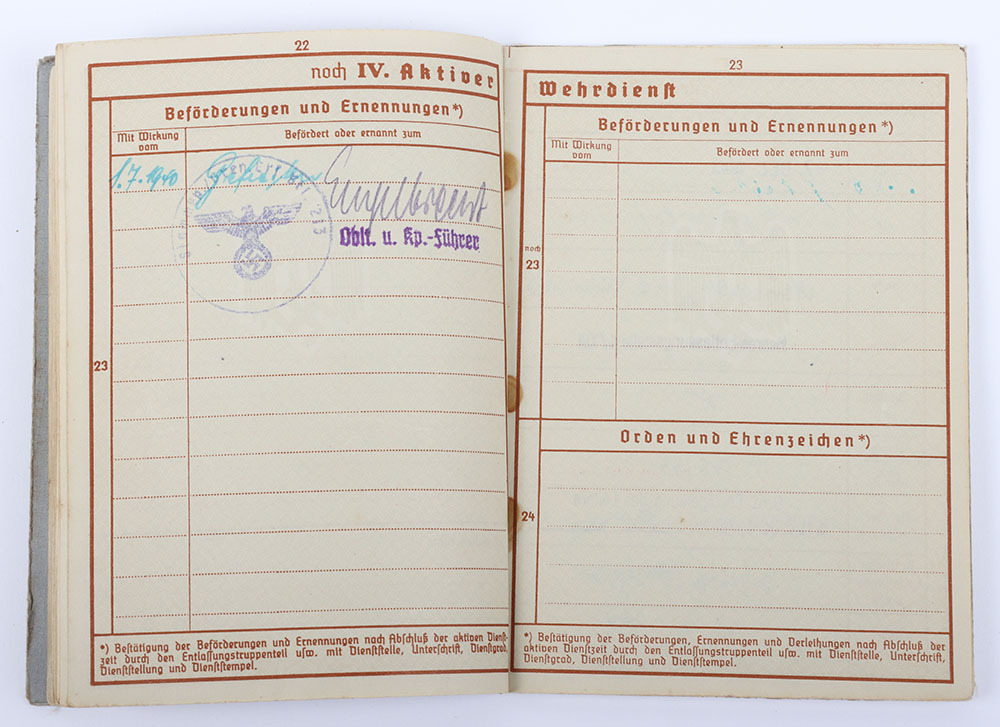 22
noch IV. Aktiver
Beförderungen und Ernennungen*)
Mit Wirkung vom
Befördert oder ernannt zum
1.7.1940 Gefreiten
Oblt. u. Kp.-Führer
23
*) Bestätigung der Beförderungen und Ernennungen nach Abschluß der aktiven Dienst-
zeit durch den Entlassungstruppenteil usw. mit Dienststelle, Unterschrift, Dienstgrad,
Dienststellung und Dienststempel.
23
Wehrdienst
Beförderungen und Ernennungen*)
Mit Wirkung vom
Befördert oder ernannt zum
noch
23
Orden und Ehrenzeichen*)
24
*) Bestätigung der Beförderungen, Ernennungen und Verleihungen nach Abschluß der
aktiven Dienstzeit durch den Entlassungstruppenteil usw. mit Dienststelle, Unterschrift,
Dienstgrad, Dienststellung und Dienststempel.